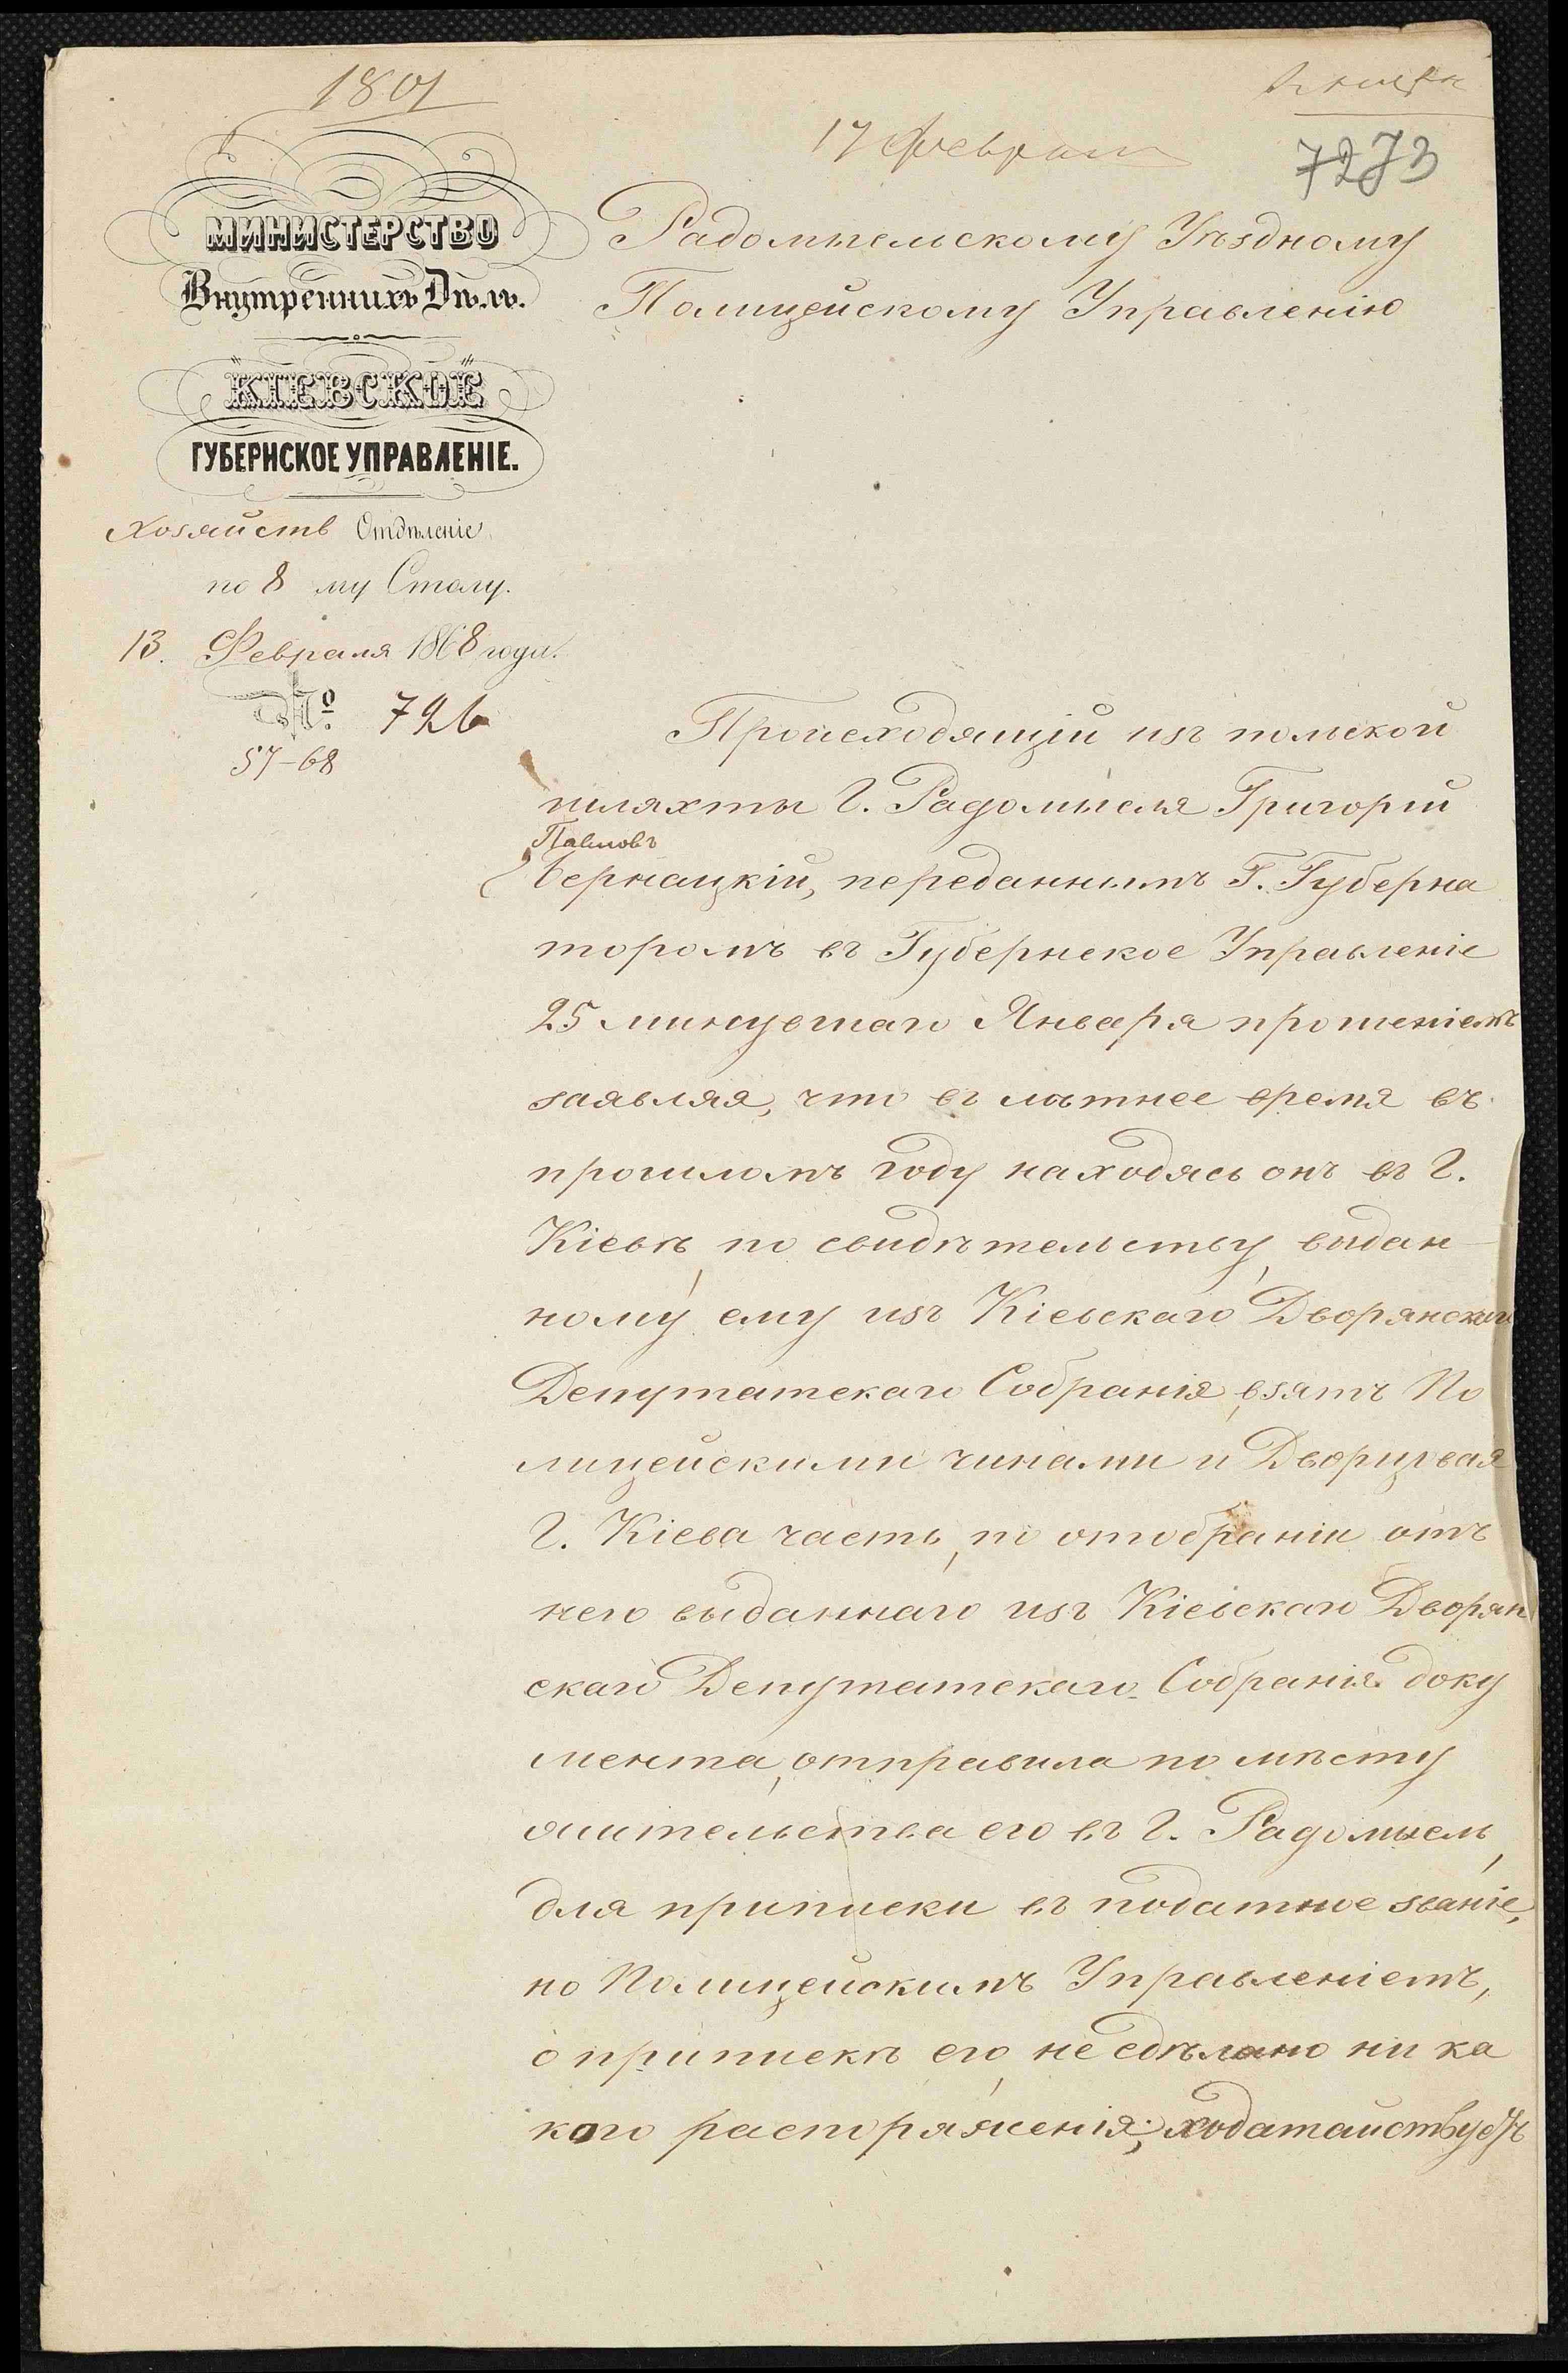 1801
17 февраля
7273
МИНИСТЕРСТВО
Внутреннихъ Дѣлъ.
КІЕВСКОЕ
ГУБЕРНСКОЕ УПРАВЛЕНІЕ.
Хозяйств Отдѣленіе
по 8 му Столу.
13. Февраля 1868 года.
№ 726
57-68
Радомысльскому Уѣздному
Полицейскому Управленію
Происходящій изъ польской
шляхты г. Радомысля Григорій
Павловъ
Бернацкій, переданнымъ Г. Губерна
торомъ въ Губернское Управленіе
25 минувшаго Января прошеніемъ
заявляя, что въ лѣтнее время въ
прошломъ году находясь онъ въ г.
Кіевѣ, по свидѣтельству, выдан-
ному ему изъ Кіевскаго Дворянскаго
Депутатскаго Собранія, взятъ По
лицейскими чинами и Дворцовая
г. Кіева часть, по отобраніи отъ
него выданнаго изъ Кіевскаго Дворян
скаго Депутатскаго Собранія доку
мента, отправила по мѣсту
жительства его въ г. Радомысль,
для приписки въ податное званіе,
но Полицейскимъ Управленіемъ,
о припискѣ его, не сдѣлано ни ка
кого распоряженія; ходатайствуетъ